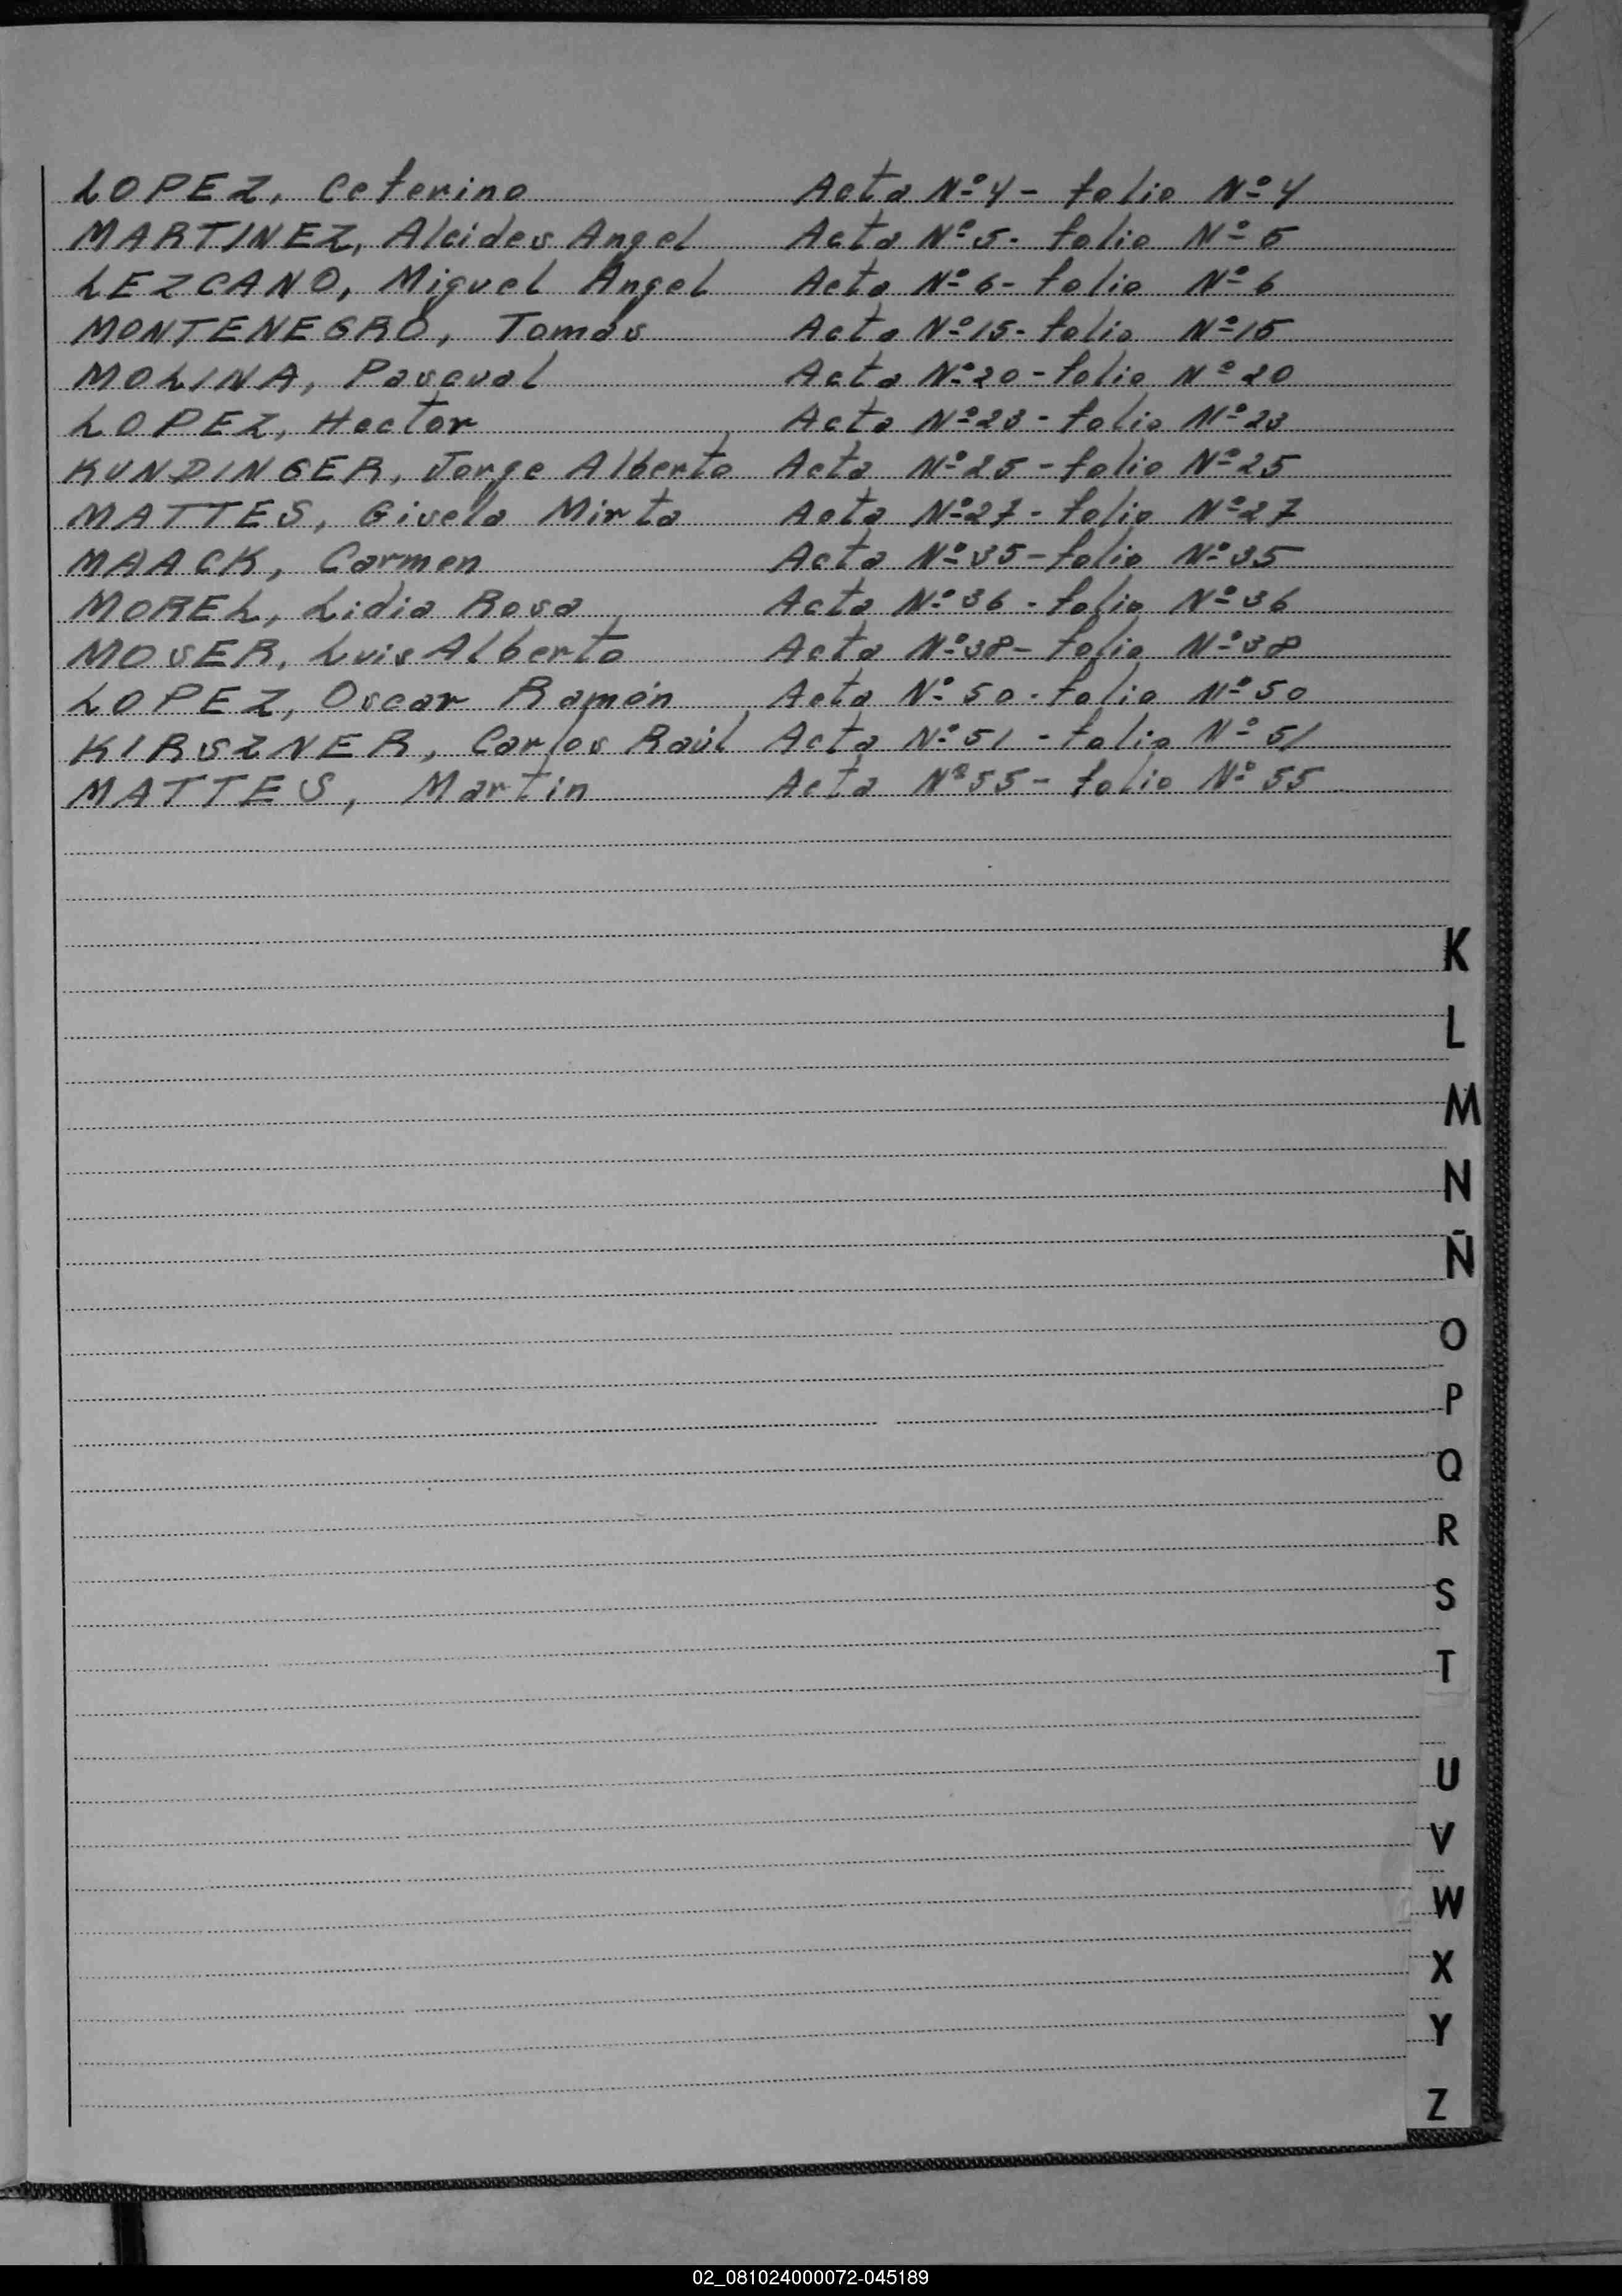 LOPEZ, Ceferino Acta Nº 4 - folio Nº 4
MARTINEZ, Alcides Angel Acta Nº 5 - folio Nº 5
LEZCANO, Miguel Angel Acta Nº 6 - folio Nº 6
MONTENEGRO, Tomás Acta Nº 15 - folio Nº 15
MOLINA, Pascual Acta Nº 20 - folio Nº 20
LOPEZ, Hector Acta Nº 23 - folio Nº 23
KUNDINGER, Jorge Alberto Acta Nº 25 - folio Nº 25
MATTES, Gisela Mirta Acta Nº 27 - folio Nº 27
MAACK, Carmen Acta Nº 35 - folio Nº 35
MOREL, Lidia Rosa Acta Nº 36 - folio Nº 36
MOSER, Luis Alberto Acta Nº 38 - folio Nº 38
LOPEZ, Oscar Ramón Acta Nº 50 - folio Nº 50
KIRSZNER, Carlos Raúl Acta Nº 51 - folio Nº 51
MATTES, Martin Acta Nº 55 - folio Nº 55
K
L
M
N
Ñ
O
P
Q
R
S
T
U
V
W
X
Y
Z
02_081024000072-045189